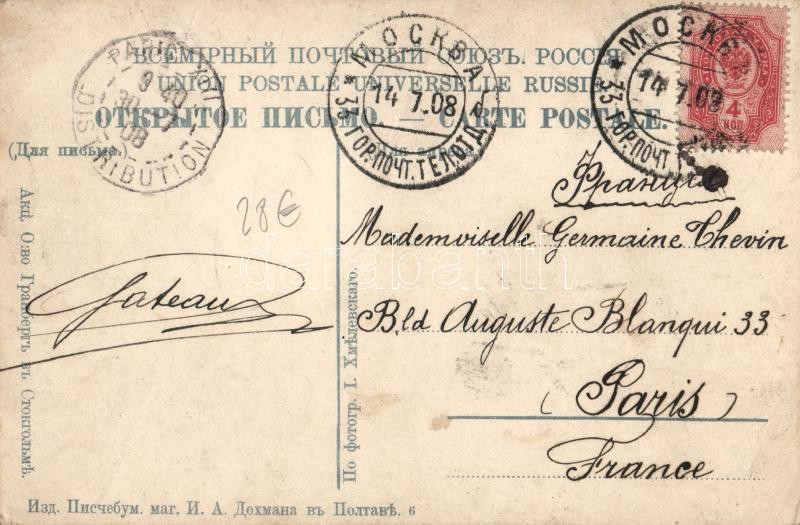 ВСЕМІРНЫЙ ПОЧТОВЫЙ СОЮЗЪ. РОССІЯ
UNION POSTALE UNIVERSELLE RUSSIE
ОТКРЫТОЕ ПИСЬМО. — CARTE POSTALE.
(Для письма.)
(Для адреса.)
PARIS XIII
DISTRIBUTION
08
МОСКВА
14 7.08
* 35 ГОР.ПОЧТ.ТЕЛ.ОТД.
МОСКВА
14 7.08
* 35 ГОР.ПОЧТ.Т
4
КОП
28€
Франція
Mademoiselle Germaine Thevin
Bld Auguste Blanqui 33
(Paris)
France
Gateaux
darabanth
Акц. О:во Гранбергъ въ Стокгольмѣ.
По фотогр. І. Хмѣлевскаго.
Изд. Писчебум. маг. И. А. Дохмана въ Полтавѣ. 6